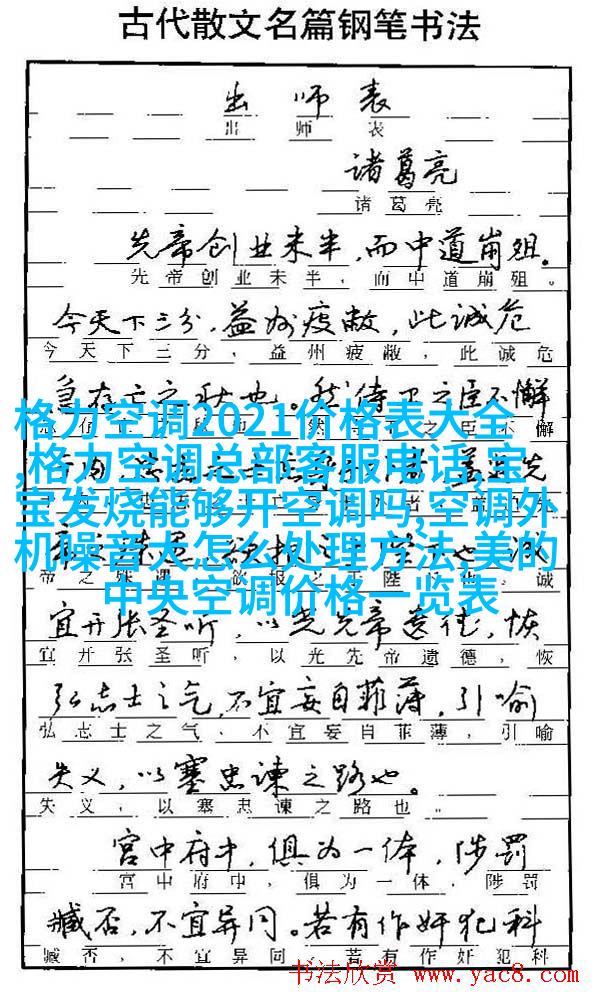 古代散文名篇钢笔书法
出师表
出师表
诸葛亮
诸葛亮
先帝创业未半,而中道崩殂。
先帝创业未半,而中道崩殂。
今天下三分,益州疲敝,此诚危
今天下三分,益州疲敝,此诚危
急存亡之秋也。然侍卫之臣不懈
之臣不懈
格力空调2021价格表大全
,格力空调总部客服电话,宝
宝发烧能够开空调吗,空调外
机噪音大怎么处理方法,美的
中央空调价格一览表
先
诚
帝之殊遇,欲报之于陛下也。诚
宜开张圣听,以光先帝遗德,恢
宜开张圣听,以光先帝遗德,恢
弘志士之气,不宜妄自菲薄,引喻
弘志士之气,不宜妄自菲薄,引喻
失义,以塞忠谏之路也。
失义,以塞忠谏之路也。
宫中府中,俱为一体,陟罚
宫中府中,俱为一体,陟罚
臧否,不宜异同。若有作奸犯科
臧否,不宜异同。若有作奸犯科
书法欣赏 www.yac8.com